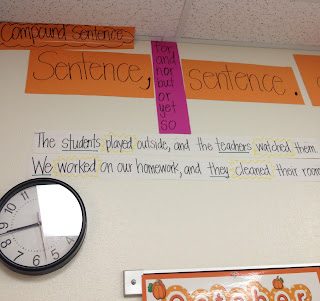 Compound Sentence
Sentence,
for
and
nor
but
or
yet
so
sentence.
The students played outside, and the teachers watched them.
We worked on our homework, and they cleaned their room
9
10
11
8
7
6
5
October